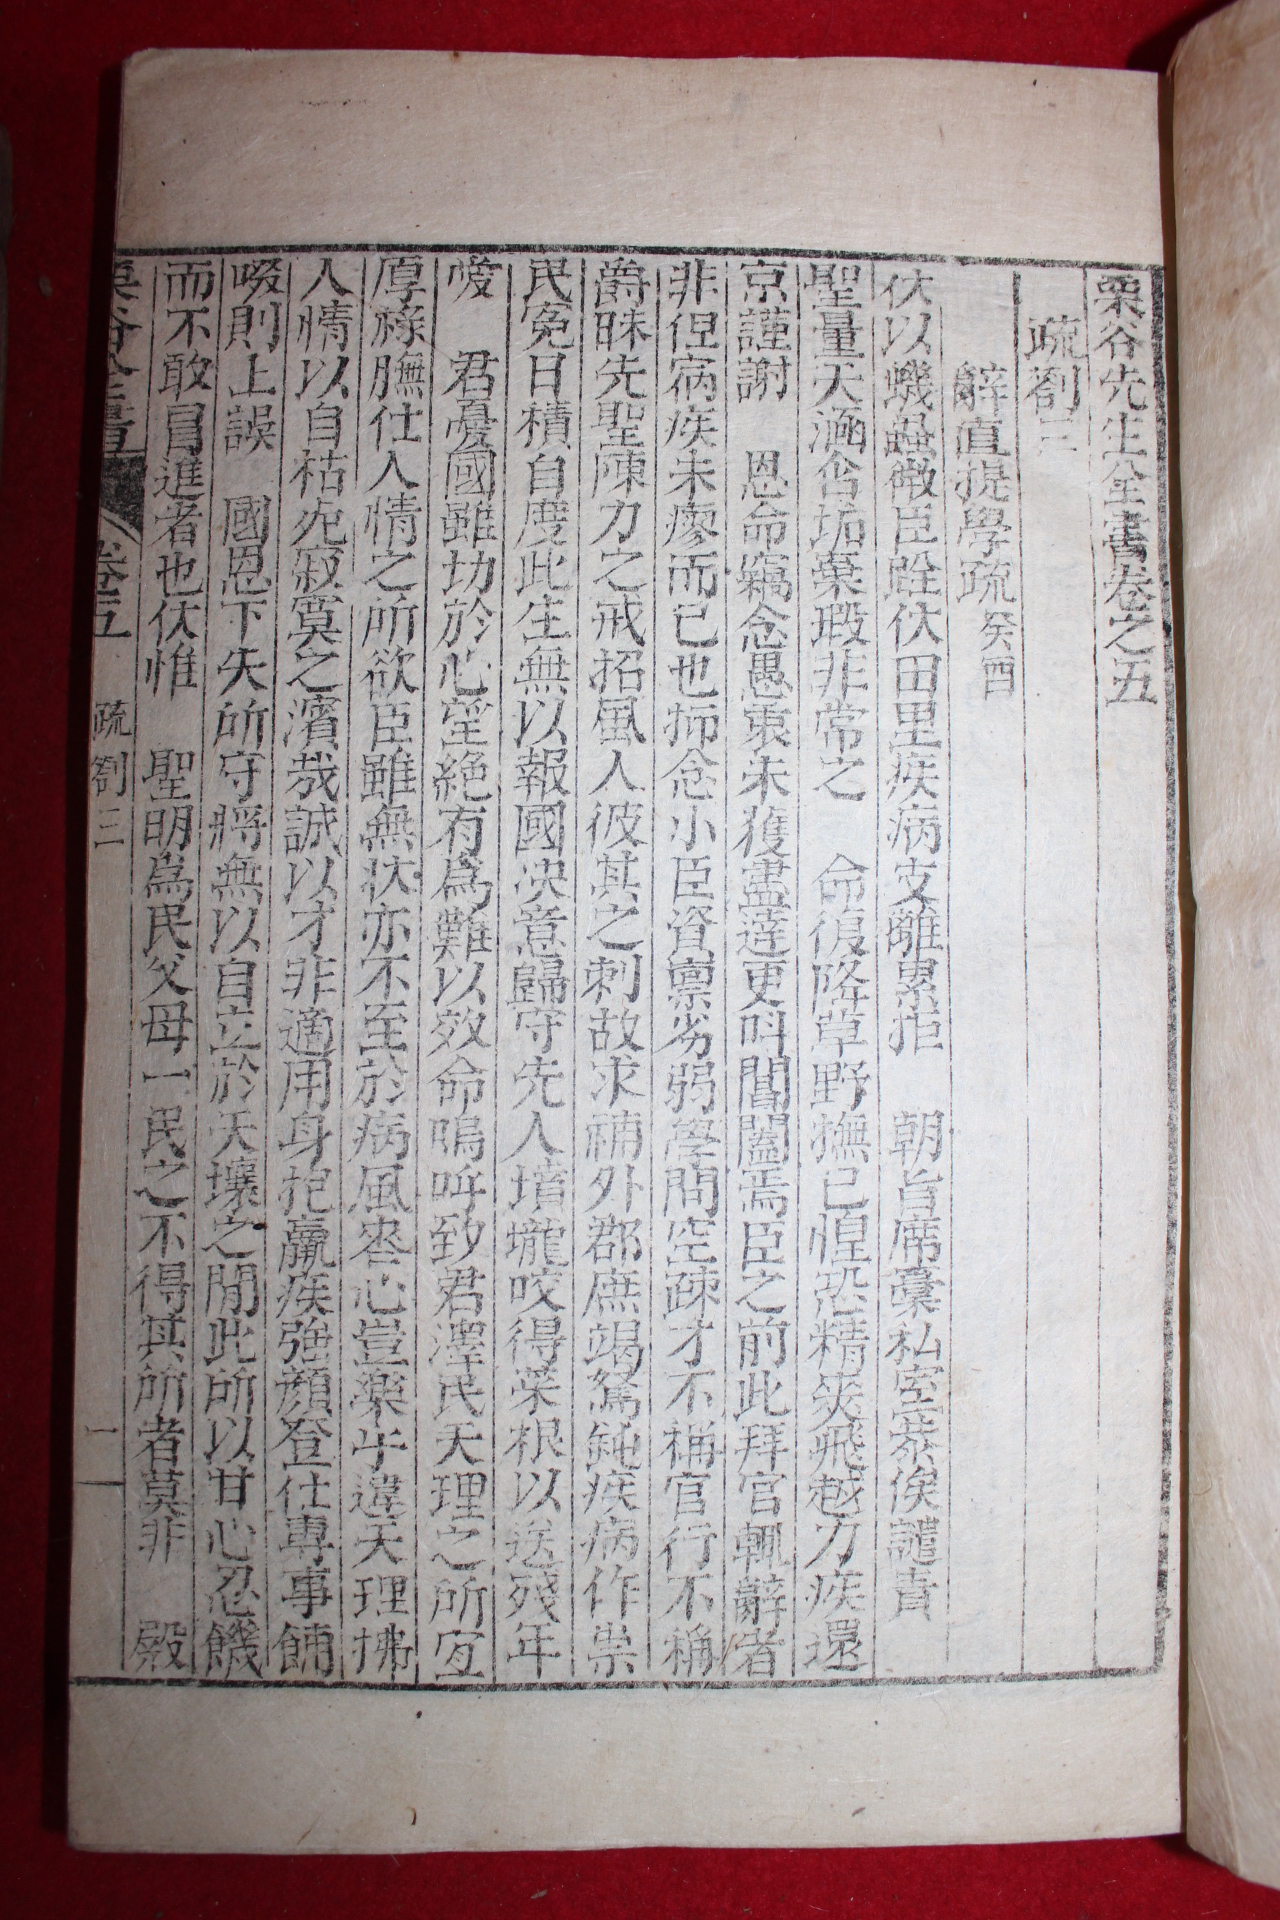 栗谷先生全書卷之五
疏劄三
辭直提學疏 癸酉
伏以蟣蝨微臣跧伏田里疾病支離累拒 朝旨席藁私室恭俟譴責
聖量天涵含垢棄瑕非常之 命復降草野撫己惶恐精爽飛越力疾還
京謹謝 恩命竊念愚衷未獲盡達更叫閶闔焉臣之前此拜官輒辭者
非但病疾未瘳而已也抑念小臣資稟劣弱學問空疎才不稱官行不稱
爵昧先聖陳力之戒招風人彼其之刺故求補外郡庶竭駑鈍疾病作祟
民冤日積自度此生無以報國決意歸守先人墳壠咬得菜根以送殘年
噯 君憂國雖切於心望絶有爲難以效命嗚呼致君澤民天理之所宜
厚祿膴仕人情之所欲臣雖無狀亦不至於病風喪心豈樂乎違天理拂
人情以自枯死寂寞之濱哉誠以才非適用身抱羸疾強顏登仕專事餔
啜則上誤 國恩下失所守將無以自立於天壤之閒此所以甘心忍饑
而不敢冒進者也伏惟 聖明爲民父母一民之不得其所者莫非 殿
栗谷全書 卷五 疏劄三 一